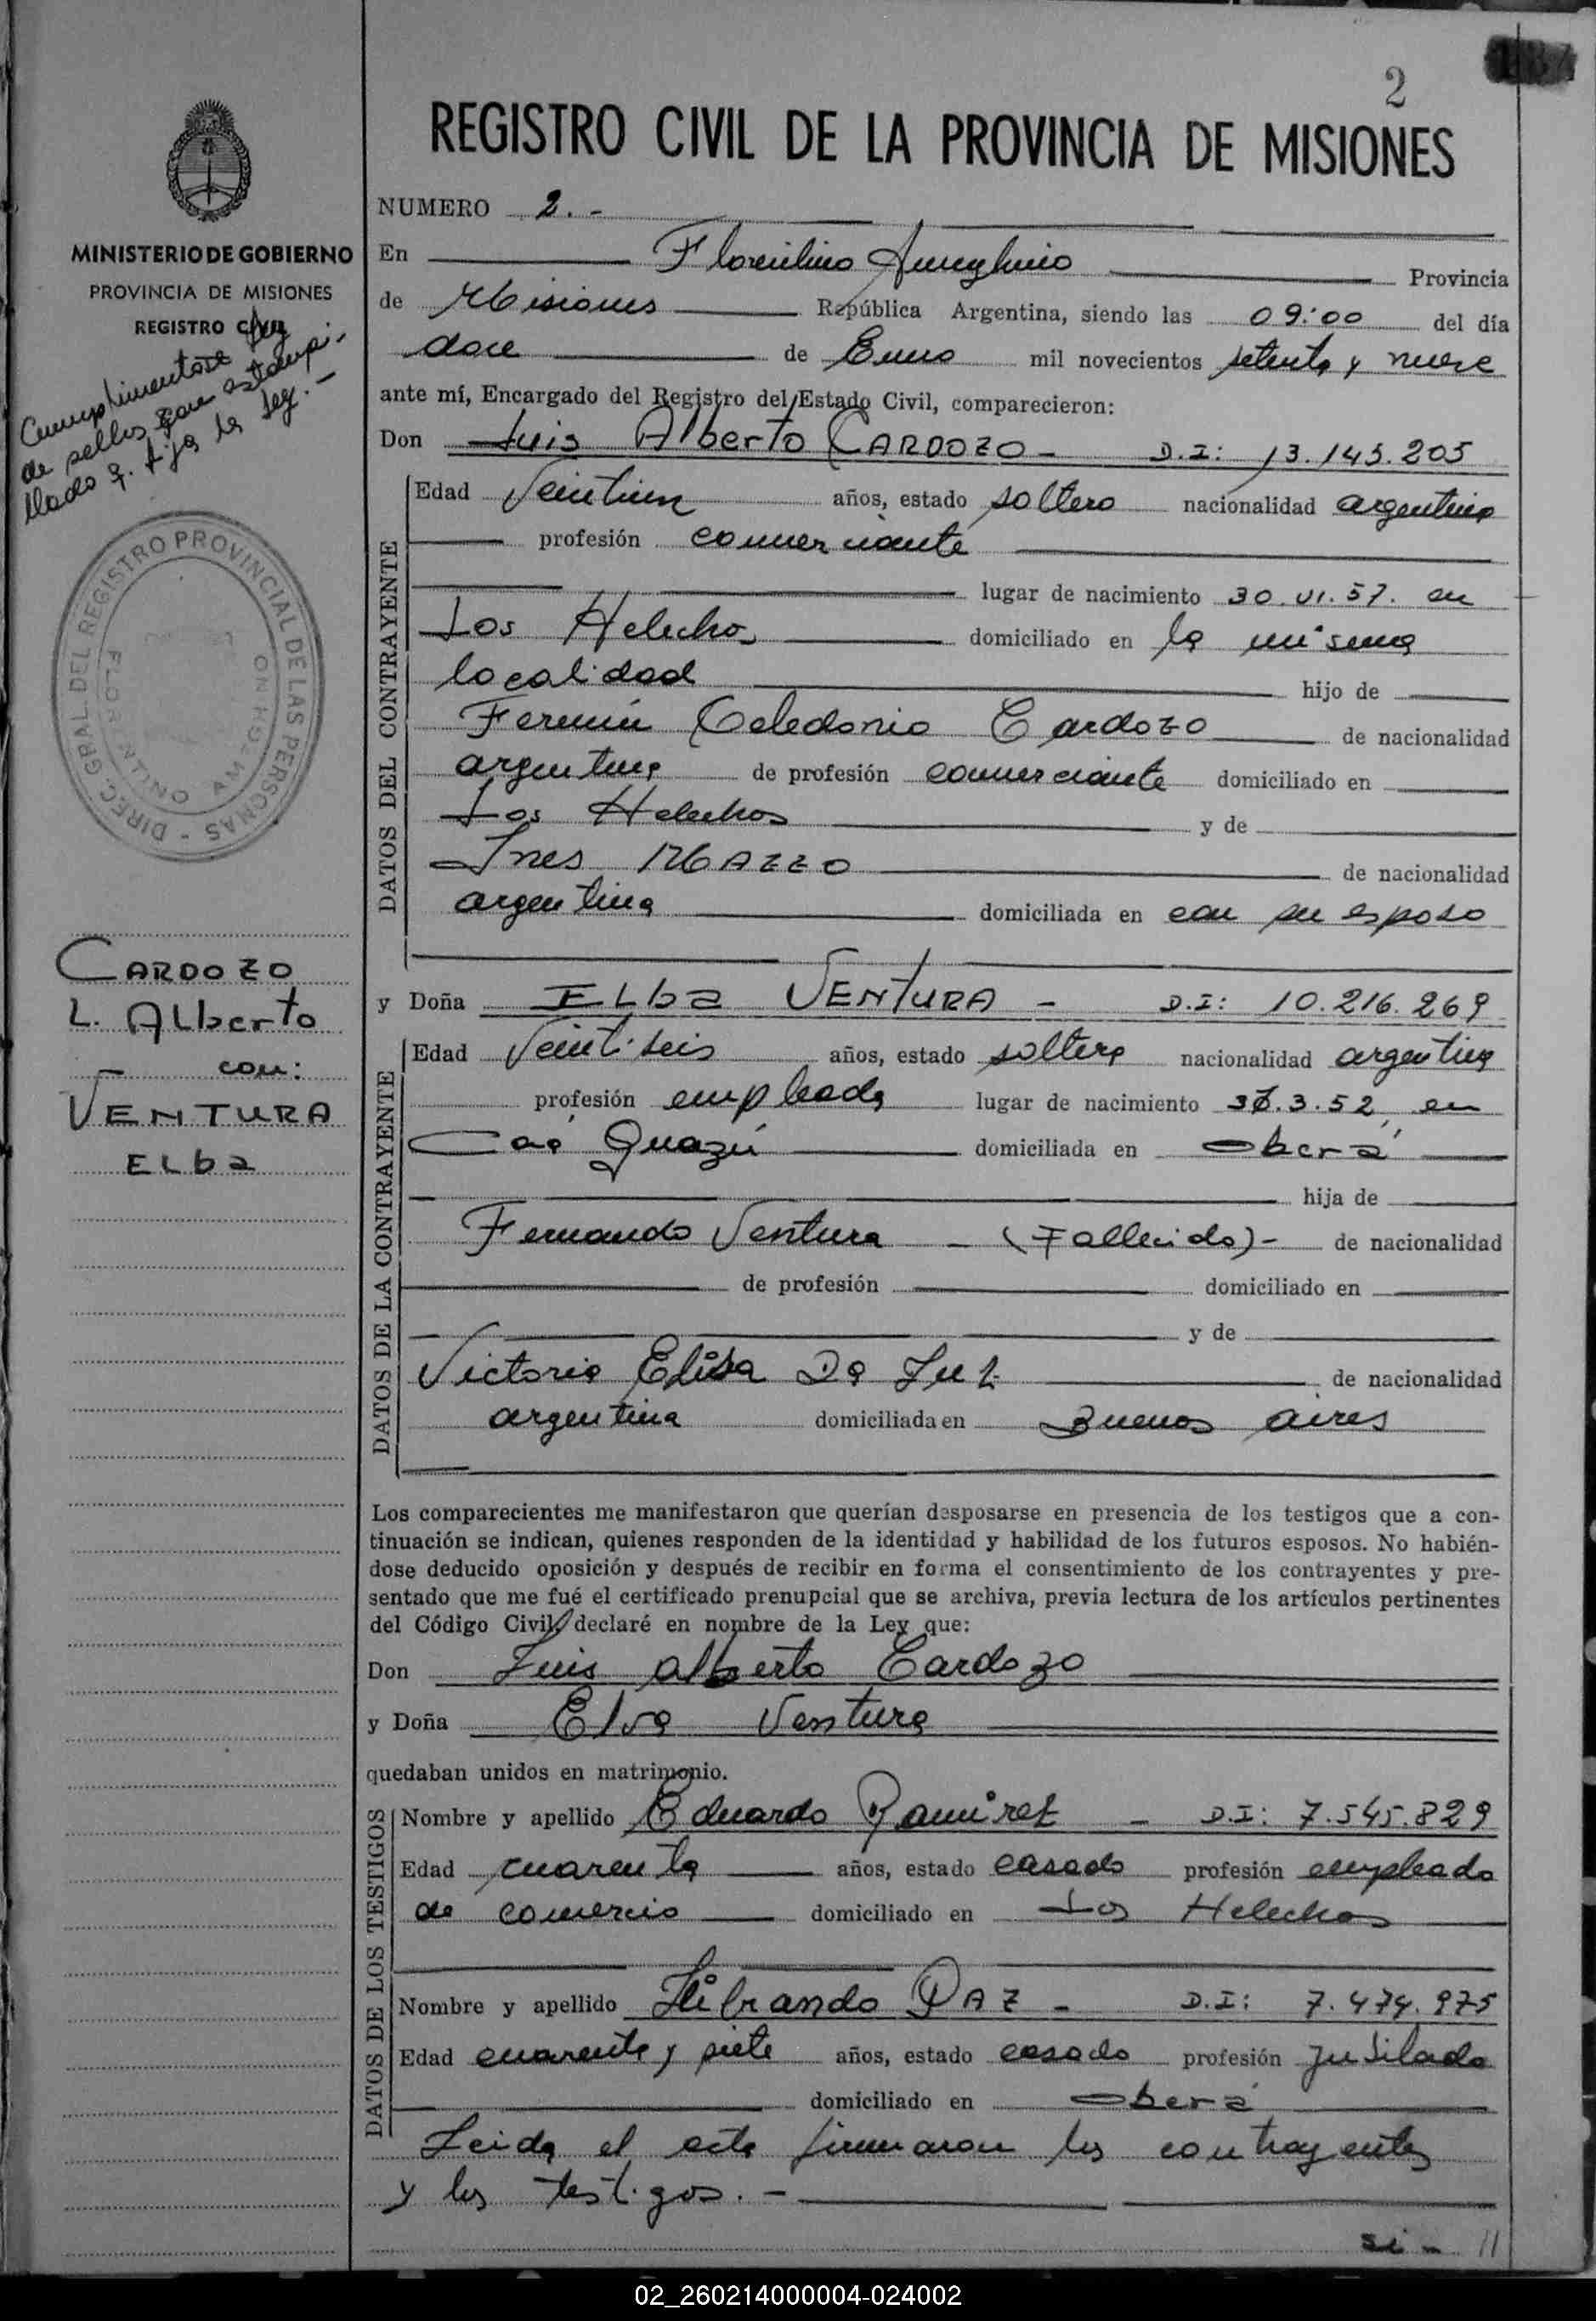 2
REGISTRO CIVIL DE LA PROVINCIA DE MISIONES
NUMERO 2. -
MINISTERIO DE GOBIERNO
PROVINCIA DE MISIONES
REGISTRO CIVIL
Cumplimentose Ley
de sellos estampi-
llado q. fija la Ley. -
DIREC. GRAL. DEL REGISTRO PROVINCIAL DE LAS PERSONAS -
FLORENTINO AMEGHINO
CARDOZO
L. ALberto
con:
VENTURA
ELba
En Florentino Ameghino Provincia
de Misiones República Argentina, siendo las 09:00 del día
doce de Enero mil novecientos setenta y nueve
ante mí, Encargado del Registro del Estado Civil, comparecieron:
Don Luis Alberto CARDOZO - D.I: 13.145.205
DATOS DEL CONTRAYENTE
Edad Veintiun años, estado soltero nacionalidad argentino
profesión comerciante
lugar de nacimiento 30.VI.57. en
Los Helechos domiciliado en la misma
localidad hijo de
Fermín Celedonio Cardozo de nacionalidad
argentino de profesión comerciante domiciliado en
Los Helechos y de
Ines MAZZO de nacionalidad
argentina domiciliada en con su esposo
y Doña ELba VENTURA - D.I: 10.216.269
DATOS DE LA CONTRAYENTE
Edad Veintiseis años, estado soltera nacionalidad argentina
profesión empleada lugar de nacimiento .3.52, en
Caá Guazú domiciliada en Oberá
hija de
Fernando Ventura - (Fallecido) - de nacionalidad
de profesión domiciliado en
y de
Victoria Elisa Da Luz de nacionalidad
argentina domiciliada en Buenos aires
Los comparecientes me manifestaron que querían desposarse en presencia de los testigos que a con-
tinuación se indican, quienes responden de la identidad y habilidad de los futuros esposos. No habién-
dose deducido oposición y después de recibir en forma el consentimiento de los contrayentes y pre-
sentado que me fué el certificado prenupcial que se archiva, previa lectura de los artículos pertinentes
del Código Civil declaré en nombre de la Ley que:
Don Luis alberto Cardozo
y Doña Elva Ventura
quedaban unidos en matrimonio.
DATOS DE LOS TESTIGOS
Nombre y apellido Eduardo Ramirez - D.I: 7.545.829
Edad cuarenta años, estado casado profesión empleado
de comercio domiciliado en Los Helechos
Nombre y apellido Hibrando PAZ - D.I: 7.474.975
Edad cuarenta y siete años, estado casado profesión Jubilado
domiciliado en Oberá
Leida el acta firmaron los contrayentes
y los testigos. -
si - //
02_260214000004-024002